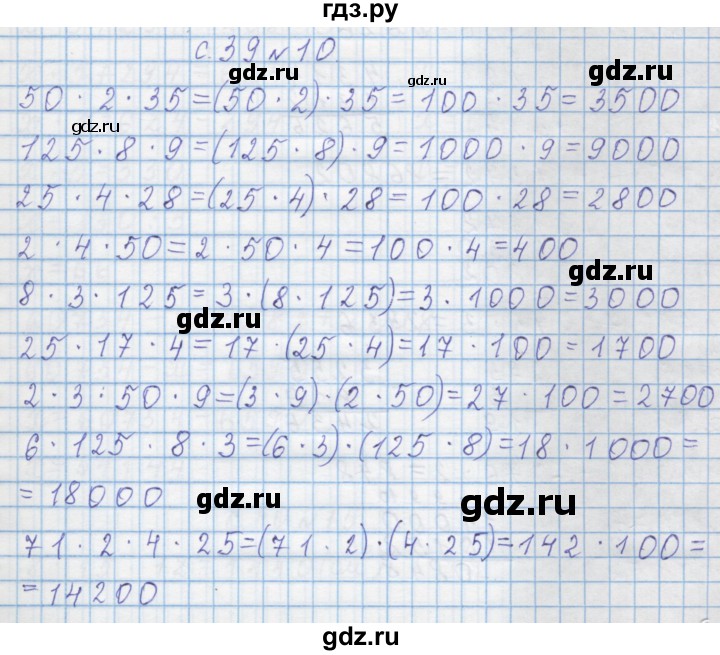 гдз.ру
с. 39 № 10.
gdz.ru
gdz.ru
50 · 2 · 35 = (50 · 2) · 35 = 100 · 35 = 3500
gdz.ru
gdz.ru
125 · 8 · 9 = (125 · 8) · 9 = 1000 · 9 = 9000
25 · 4 · 28 = (25 · 4) · 28 = 100 · 28 = 2800
2 · 4 · 50 = 2 · 50 · 4 = 100 · 4 = 400
gdz.ru
8 · 3 · 125 = 3 · (8 · 125) = 3 · 1000 = 3000
gdz.ru
25 · 17 · 4 = 17 · (25 · 4) = 17 · 100 = 1700
2 · 3 · 50 · 9 = (3 · 9) · (2 · 50) = 27 · 100 = 2700
6 · 125 · 8 · 3 = (6 · 3) · (125 · 8) = 18 · 1000 =
= 18000
gdz.ru
gdz.ru
71 · 2 · 4 · 25 = (71 · 2) · (4 · 25) = 142 · 100 =
= 14200
gdz.ru